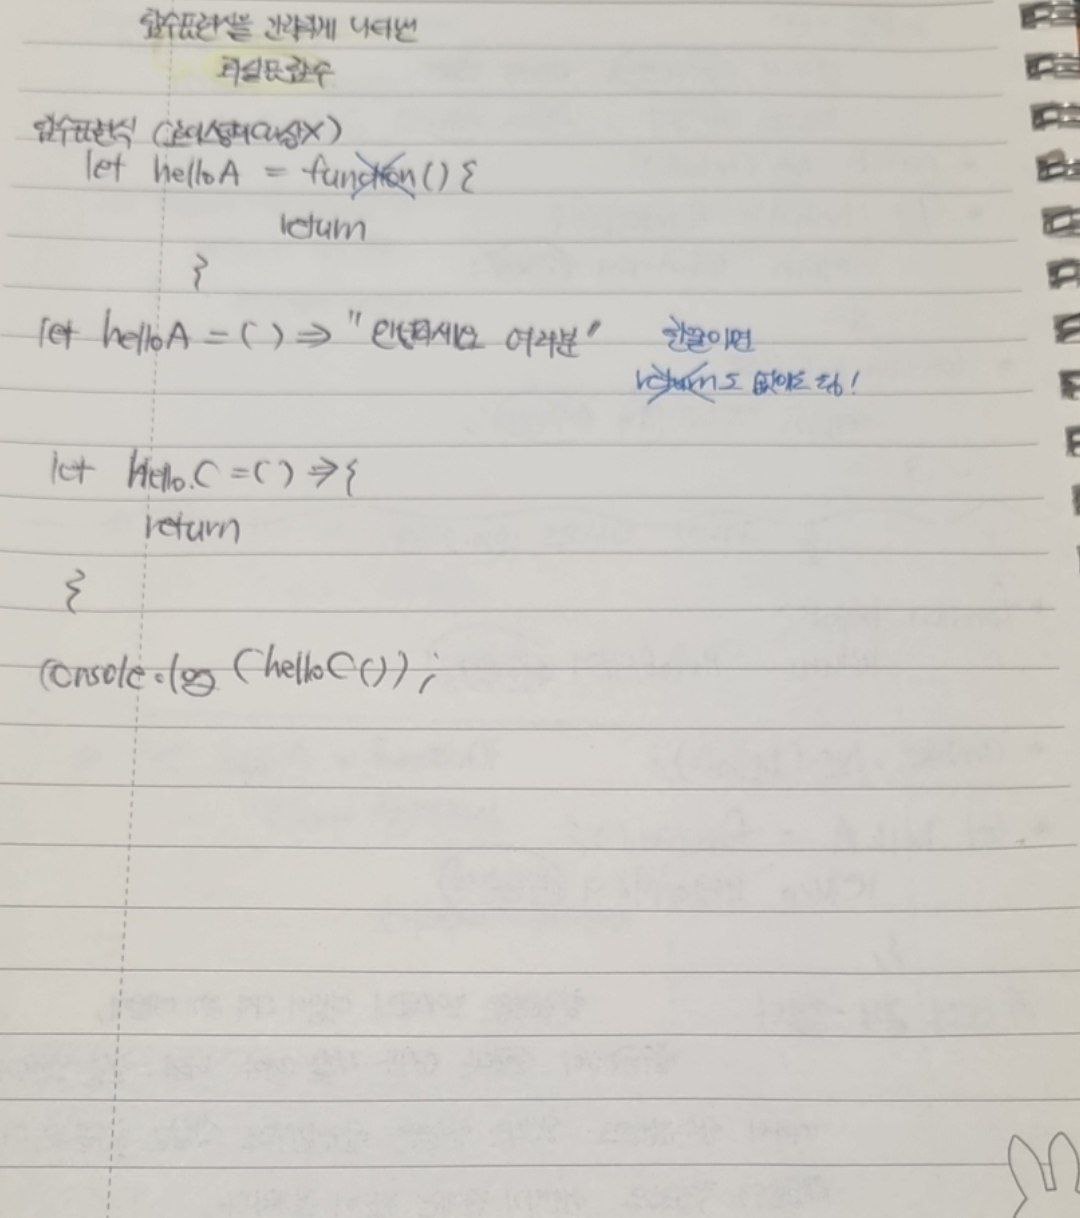 함수표현식을 간략하게 나타낸
화살표함수
함수표현식 (호이스팅의 대상X)
let helloA = function() {
return
}
let helloA = () => "안녕하세요 여러분" 한줄이면
return도 없어도 됨!
let hello.C = () => {
return
}
console.log (helloC());